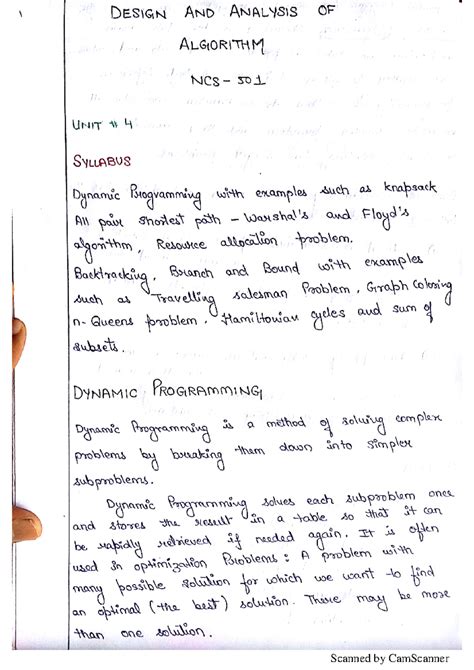 DESIGN AND ANALYSIS OF
ALGORITHM
NCS-501
UNIT # 4
SYLLABUS
Dynamic Programming with examples such as knapsack
All pair shortest path - Warshal's and Floyd's
algorithm, Resource allocation problem.
Backtracking, Branch and Bound with examples
such as Travelling salesman Problem, Graph Coloring
n-Queens problem, Hamiltonian cycles and sum of
subsets.
DYNAMIC PROGRAMMING
Dynamic Programming is a method of solving complex
problems by breaking them down into simpler
subproblems.
Dynamic Programming solves each subproblem once
and stores the result in a table so that it can
be rapidly retrieved if needed again. It is often
used in optimization Problems: A problem with
many possible solution for which we want to find
an optimal (the best) solution. There may be more
than one solution.
Scanned by CamScanner